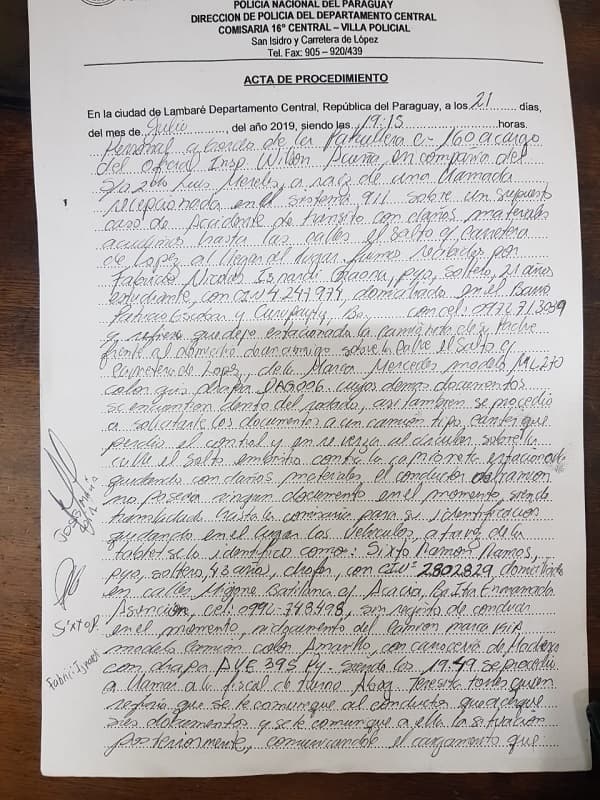 POLICIA NACIONAL DEL PARAGUAY
DIRECCION DE POLICIA DEL DEPARTAMENTO CENTRAL
COMISARIA 16° CENTRAL – VILLA POLICIAL
San Isidro y Carretera de López
Tel. Fax: 905 – 920/439
ACTA DE PROCEDIMIENTO
En la ciudad de Lambaré Departamento Central, República del Paraguay, a los 21 días,
del mes de Julio, del año 2019, siendo las 19:15 horas.
Personal a bordo de la Patrullera C- 160 a cargo
del oficial Insp. Wilson Acuña, en compañia del
Luis Mereles, a raiz de una llamada
recepcionada en el sistema 911 sobre un supuesto
caso de Accidente de transito con daños materiales
acudimos hasta las calles el Salto y Carretera
de Lopez al llegar al lugar fuimos recibidos por
Fabricio Nicolas Isnardi pyo, soltero, 21 años
estudiante, con CI Nº 4.247.974, domiciliado en el Barrio
Patricio Escobar y Curupayty, con cel:
refirio que dejo estacionado la camioneta de su Padre
frente al domicilio de un amigo sobre la calle el Salto y
Carretera de Lopez, de la Marca Mercedes modelo ML270
color gris chapa cuyos demas documentos
se encuentran dentro del rodado, asi tambien se procedio
a solicitarle los documentos a un camión tipo canter que
perdio el control y en reversa al circular sobre la
calle el Salto embistio contra la camioneta estacionada
quedando con daños materiales, el conductor del camion
no poseia ningun documento en el momento, siendo
trasladado hasta la comisaria para su identificacion
quedando en el lugar los vehiculos, a travez de la
tablet se lo identifico como: Sixto Ramon Ramos,
pyo, soltero, 43 años, chofer, con CI Nº 2802829, domiciliado
en calles Migone Batilana y Acacia, Enramada
Asuncion, cel: 0994-748498, sin registo de conducir
en el momento, ni documento del camion marca Kia
modelo camion color Amarillo, con carroceria de Madera
con chapa AYE 395 Py. siendo las 19:49 se procedio
a llamar a la fiscal de turno Abog Teresita Torres quien
refirio que se le comunique al conductor que acerque
sus documentos y se le comunique a ella la situacion
posteriormente, comunicandole el cargamento que
Sixto R
Fabrici Isnardi